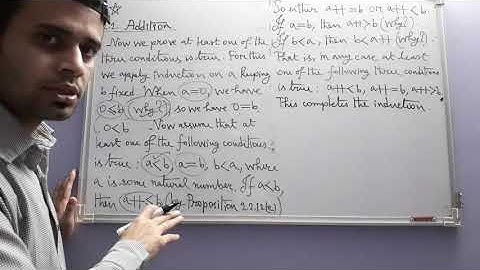 Addition
Now we prove at least one of the
three conditions is true. For this
we apply induction on a keeping
b fixed. When a=0, we have
0≤b (why?), so we have 0=b,
0<b Now assume that at
least one of the following conditions
is true: a<b, a=b, b<a, where
a is some natural number. If a<b,
then a++≤b (by Proposition 2.2.12(e))
So either a++=b or a++<b.
If a=b, then a++>b (why?)
If b<a, then b<a++ (why?).
That is, in any case at least
one of the following three conditions
is true: a++<b, a++=b, a++>b
This completes the induction.